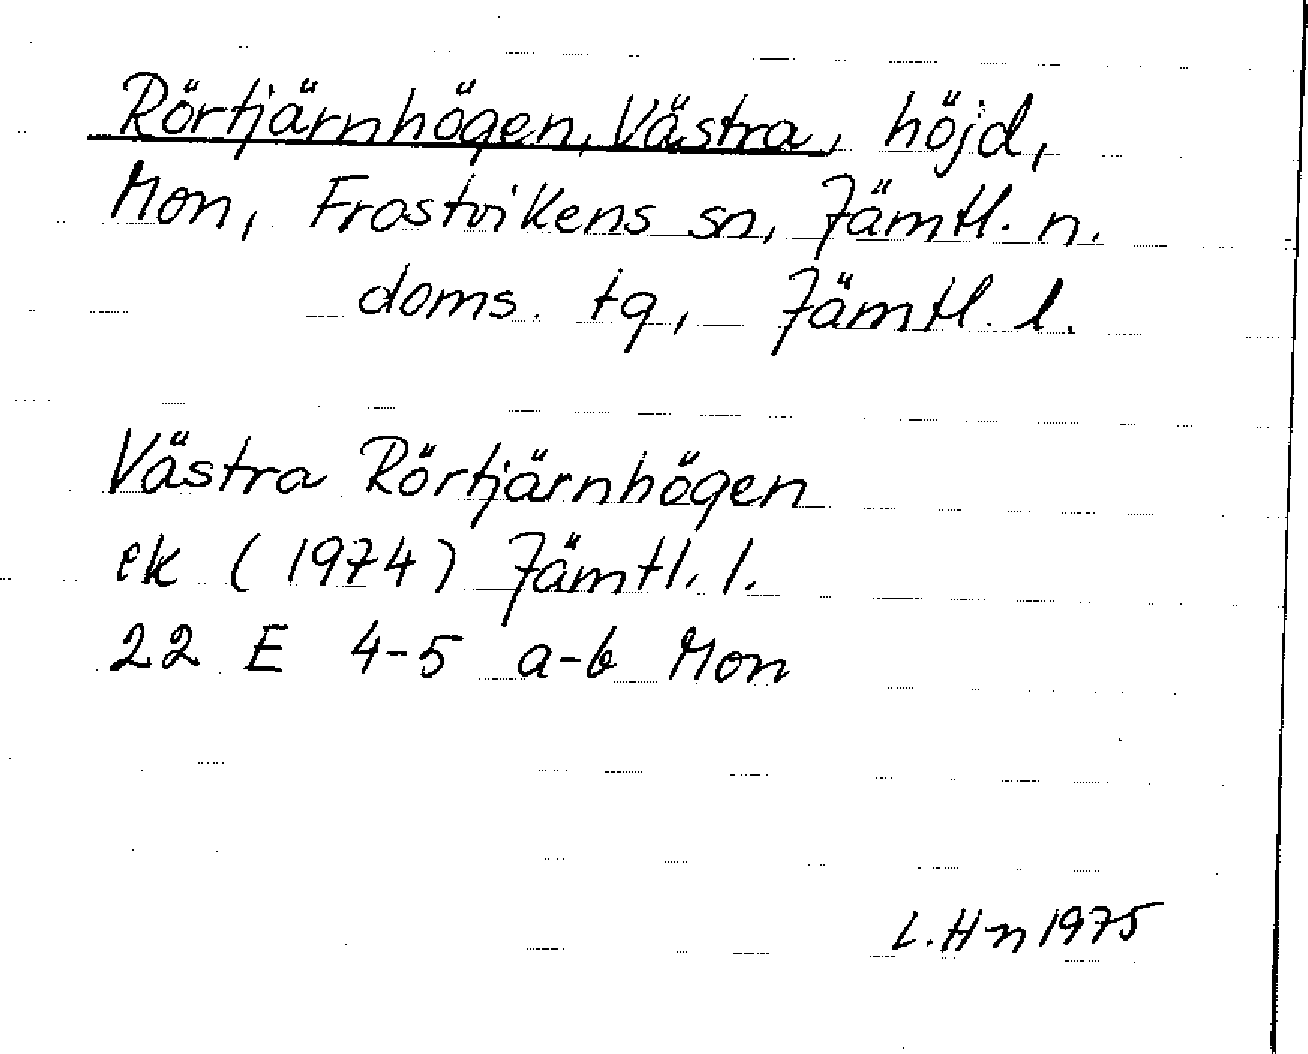 Rörtjärnhögen, Västra, höjd,
Mon, Frostvikens sn, Jämtl. n.
doms. tg, Jämtl. l.
Västra Rörtjärnhögen
ek (1974) Jämtl. l.
22 E 4-5 a-b Mon
L. Hn 1975